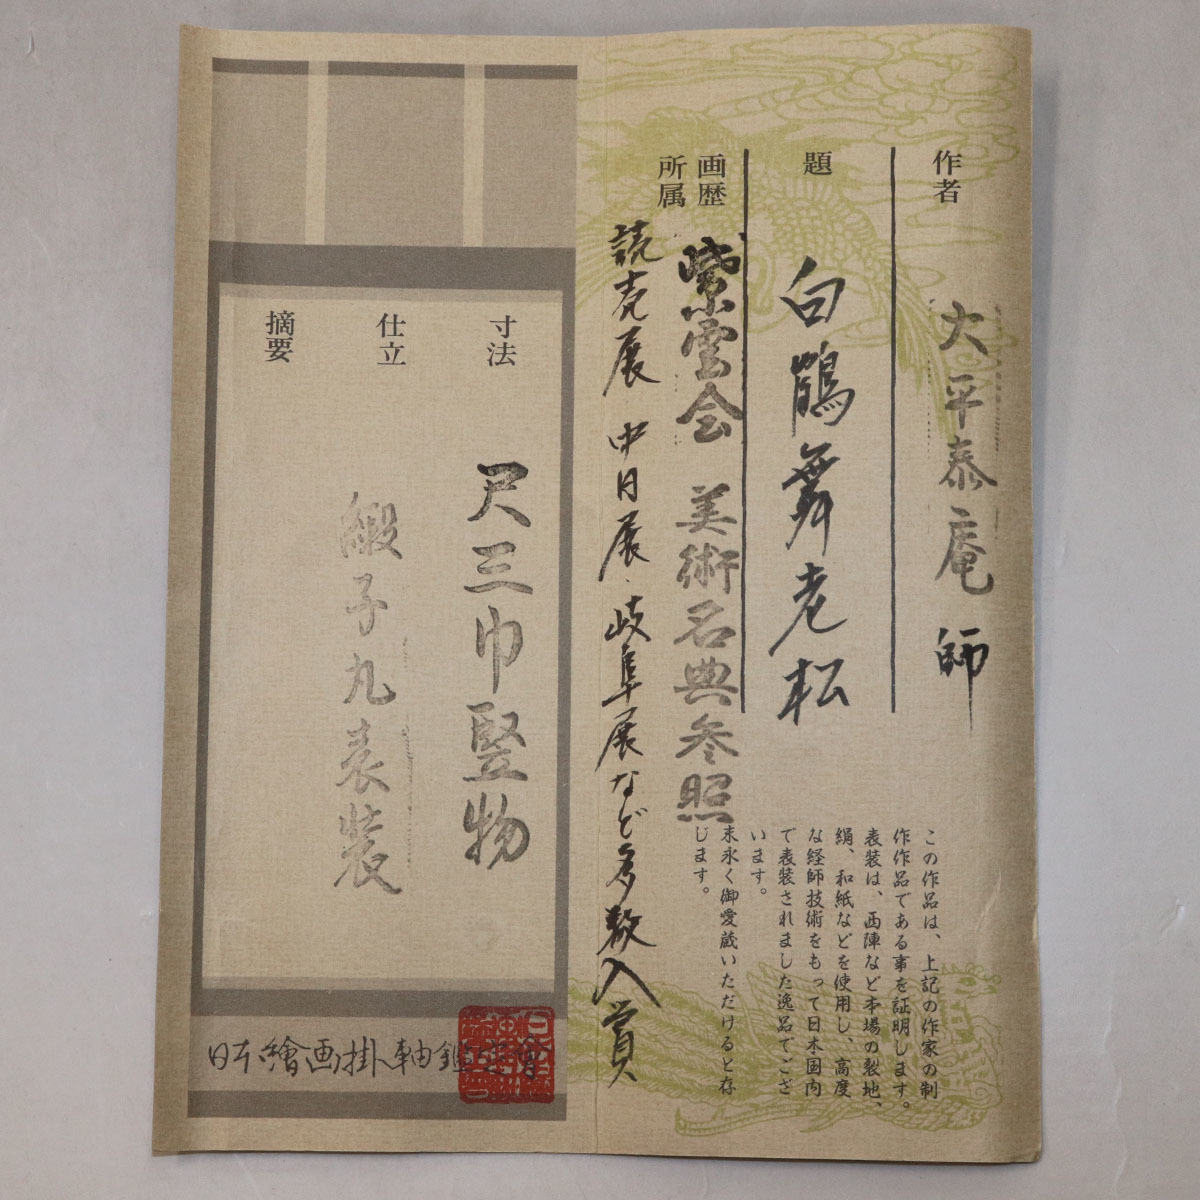 作者 大平泰庵 師
題 白鶴舞老松
画歴
所属
紫雲会 美術名典参照
読売展 中日展・岐阜展など多数入賞
この作品は、上記の作家の制
作作品である事を証明します。
表装は、西陣など本場の裂地、
絹、和紙などを使用し、高度
な経師技術をもって日本国内
で表装されました逸品でござ
います。
末永く御愛蔵いただけると存
じます。
寸法 尺三巾竪物
仕立 緞子丸表装
摘要
日本繪画掛軸鑑定會